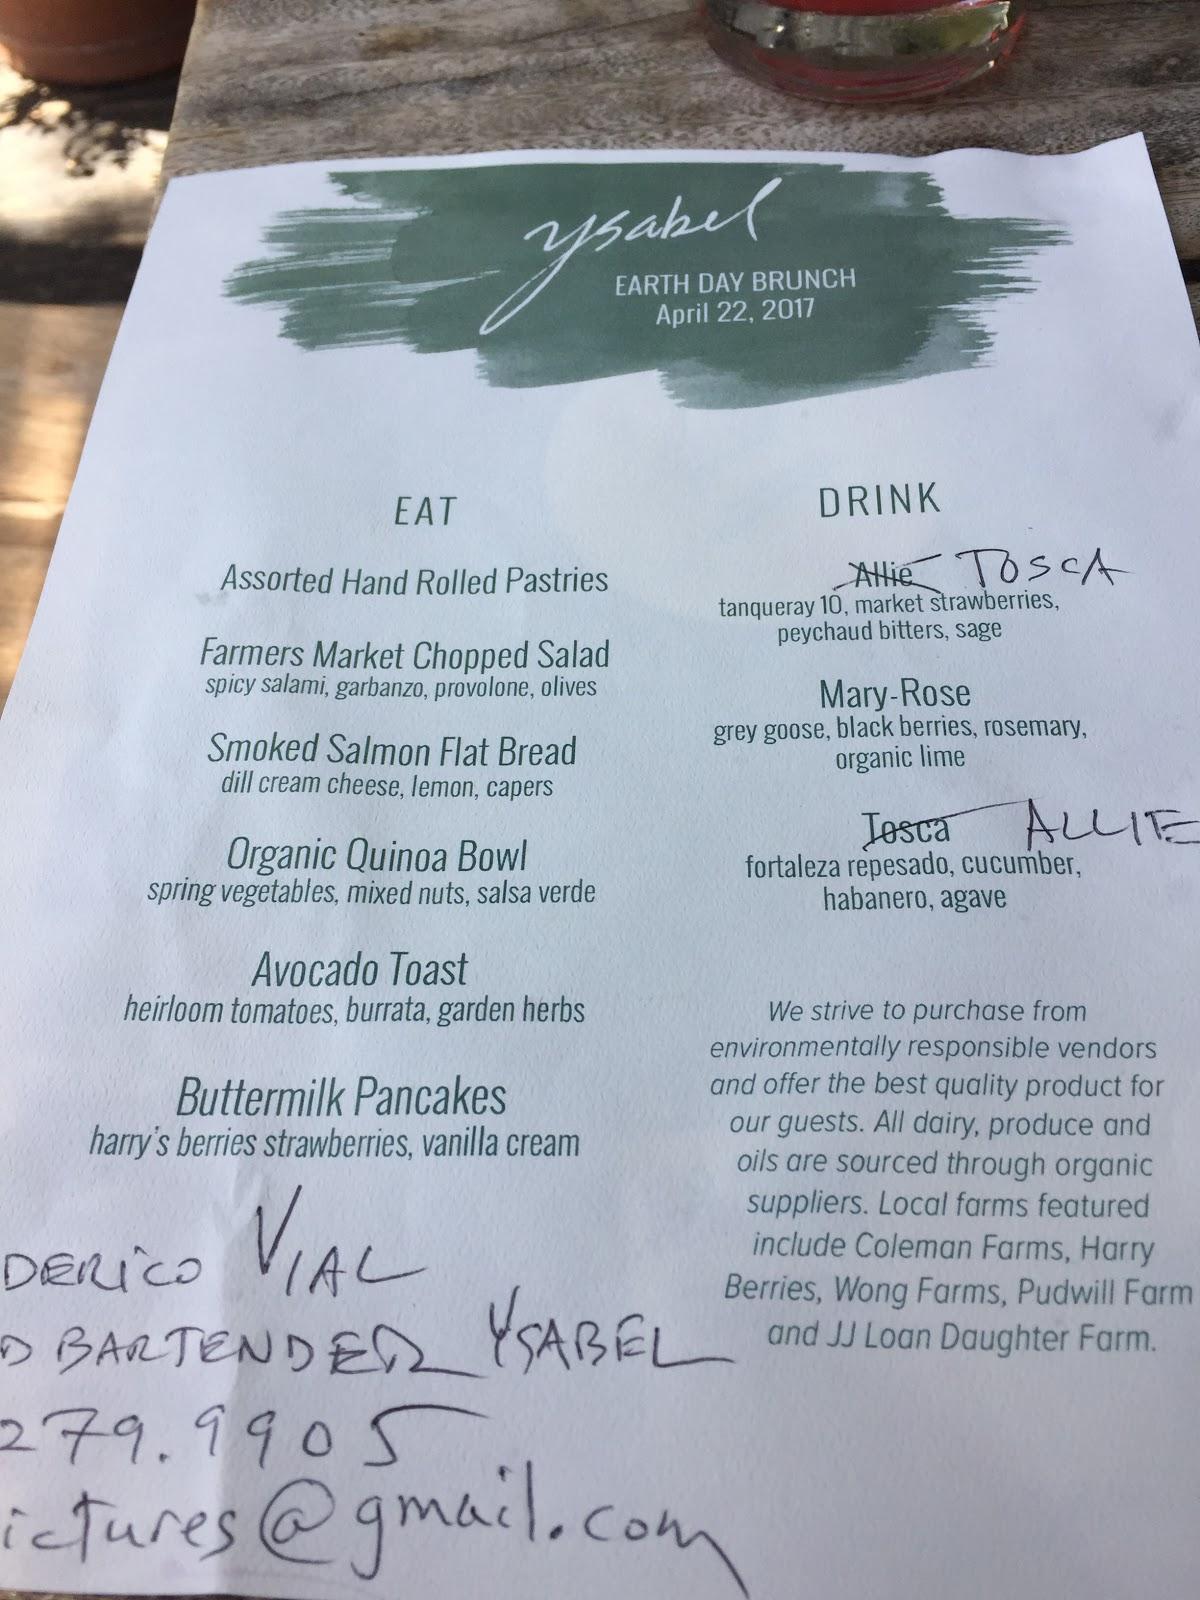 ysabel
EARTH DAY BRUNCH
April 22, 2017
EAT
Assorted Hand Rolled Pastries
Farmers Market Chopped Salad
spicy salami, garbanzo, provolone, olives
Smoked Salmon Flat Bread
dill cream cheese, lemon, capers
Organic Quinoa Bowl
spring vegetables, mixed nuts, salsa verde
Avocado Toast
heirloom tomatoes, burrata, garden herbs
Buttermilk Pancakes
harry's berries strawberries, vanilla cream
DRINK
Allie TOSCA
tanqueray 10, market strawberries,
peychaud bitters, sage
Mary-Rose
grey goose, black berries, rosemary,
organic lime
Tosca ALLIE
fortaleza repesado, cucumber,
habanero, agave
We strive to purchase from
environmentally responsible vendors
and offer the best quality product for
our guests. All dairy, produce and
oils are sourced through organic
suppliers. Local farms featured
include Coleman Farms, Harry
Berries, Wong Farms, Pudwill Farm
and JJ Loan Daughter Farm.
DERICO VIAL
D BARTENDER YSABEL
279.9905
ictures@gmail.com